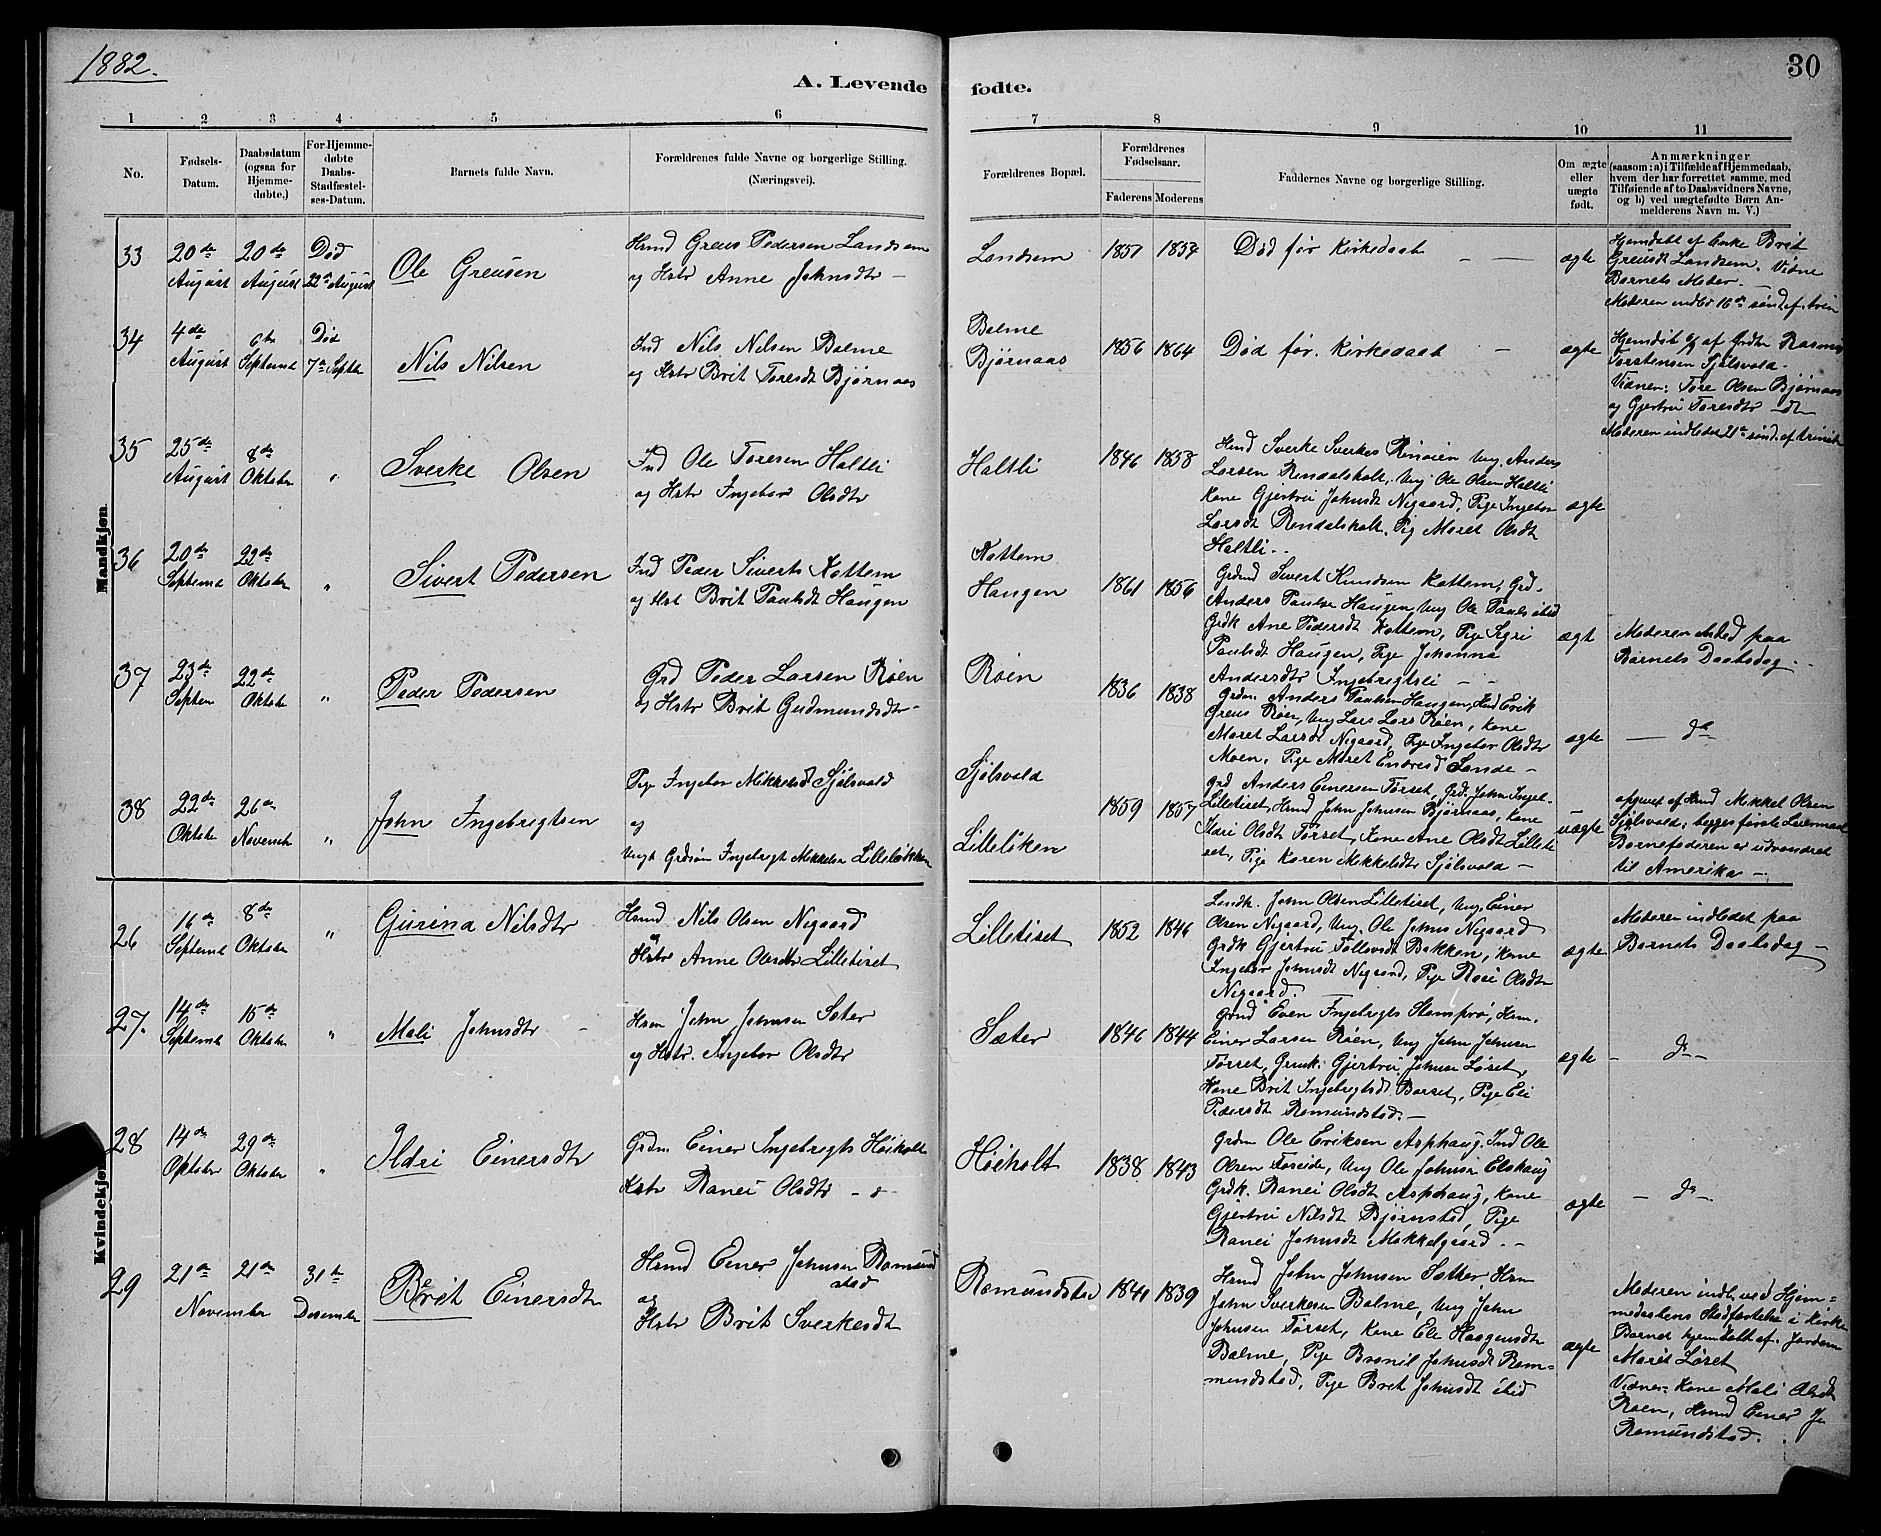 1882.
30
A. Levende fødte.
1 2 3 4 5 6 7 8 9 10 11
No.
Fødsels-
Datum.
Daabsdatum
(ogsaa for
Hjemme-
døbte.)
For Hjemme-
døbte
Daabs-
Stadfæstel-
ses-Datum.
Barnets fulde Navn.
Forældrenes fulde Navne og borgerlige Stilling.
(Næringsvei).
Forældrenes Bopæl.
Forældrenes
Fødselsaar.
Faderens Moderens
Faddernes Navne og borgerlige Stilling.
Om ægte
eller
uægte
født.
Anmærkninger
(saasom: a) i Tilfælde af Hjemmedaab,
hvem der har forrettet samme, med
Tilføiende af to Daabsvidners Navne,
og b) ved uægtefødte Børn An-
melderens Navn m. V.)
Mandkjøn.
33
20de
August
20de
August
Død
22de August
Ole Greusen
Hmd Greus Pedersen Landsem
og Hstr Anne Johnsdtr
Landsem
1857 1854
Død før Kirkedaab
ægte
Hjemdøbt af Enke Brit
Greusdt Landsem. Vidne
Barnets Moder.
34
4de
August
6te
Septemb
Død
7de Septbr
Nils Nilsen
Ind Nils Nilsen Bolme
og Hstr Brit Toresdt Bjørnaas
Bolme
Bjørnaas
1856 1864
Død før Kirkedaab
ægte
Torstensen Sjølsvold.
Vidner: Tore Olsen Bjørnaas
og Gjertrui Toresdtr dt
35
25de
August
8de
Oktober
"
Sverke Olsen
Ind Ole Toresen Holtli
og Hstr Ingebor Olsdtr
Holtli
1846 1858
Larsen Rendalsholt, Ung. Ole Olsen Holtli
Kone Gjertrui Johnsdt Nigaard, Pige Ingebor
Larsdt Rendalsholt, Pig Maret Olsdt
Holtli.
ægte
36
20de
Septemb
22de
Oktober
"
Sivert Pedersen
Ind Peder Siverts Kattem
og Hst Brit Paulsdt Haugen
Kattem
Haugen
1861 1856
Grdmd Sivert Knudsen Kattem, Grd.
Anders Paulse Haugen, Ung Ole Pauls ibid
Grdk Ane Pedersdt Kattem, Pige Sigri
Paulsdt Haugen, Pige Johanna
Andersdtr Ingebrigtsli
ægt
Moderen indled paa
Barnets Daabsdag.
37
23de
Septem
22de
Oktober
"
Peder Pedersen
Grd Peder Larsen Røen
og Hstr Brit Gudmundsdtr
Røen
1836 1838
Grdm. Anders Paulsen Haugen, Ind Erik
Greus Røen, Ung Lars Lars Røen, Kone
Maret Larsdt Nigaard, Pige Ingebor Olsdtr
Moen, Pige Maret Endresd Lande
ægte
do
38
22de
Oktober
26de
Novemb
"
John Ingebrigtsen
Pige Ingebor Mikkelsdt Sjølsvold
og
Ungk Grdsøn Ingebrigt Mikkelsen Lilleløkken
Sjølsvold
Lilleløken
1859 1857
Grd Anders Einersen Tørset, Grd. John Ingeb.
Lilletiset, Hmd John Johnsen Bjørnaas, Kone
Ildri Olsdt Tørset, Kone Ane Olsdt Lilleti
set, Pige Karen Mikkelsdtr Sjølsvold
uægte
opgivet af Hmd Mikkel Olsen
Sjølsvold; begges første Leiermaal
Barnefaderen er udvandret
til Amerika
Kvindekjøn.
26
16de
Septemb
8de
Oktober
"
Gurina Nilsdtr
Hsmd Nils Olsen Nigaard
og
Hstr Anne Olsdtr Lilletiset
Lilletiset
1852 1846
Landh. John Olsen Lilletiset, Ung. Einer
Olsen Nigaard, Ung. Ole Johns Nigaard
Grdk Gjertrui Tollevsdt Bakken, Kone
Ingebor Johnsdt Nigaard, Pige Ranei Olsdtr
Nigaard.
ægte
Moderen indledet paa
Barnets Daabsdag
27.
14de
Septemb
15de
Oktober
"
Mali Johnsdtr
Hsm John Johnsen Sæter
og Hstr. Ingebor Olsdtr
Sæter
1846 1844
Grmd Even Ingebrigts Stomprø, Hsm.
Einer Larsen Røen, Ung John Johnsen
Tørset, Grmk. Gjertrui Johnse Løset,
Kone Brit Ingebrigtsdt Børset, Pige Eli
Pedersdt Romundstad.
ægte
do
28
14de
Oktober
29de
Oktober
"
Ildri Einersdtr
Grdm. Einer Ingebrigts Høiholt
Hstr Ranei Olsdtr
Høiholt
1838 1843
Grdm Ole Eriksen Asphaug, Ind Ole
Olsen Foseide, Ung Ole Johnsen Elshaug
Grdk. Ranei Olsdt Asphaug, Kone
Gjertrui Nilsdt Bjørnstad, Pige
Ranei Johnsdt Mokkelgaard.
ægte
do
29
21de 21de
November
31te
Desember
Brit Einersdtr
Hsmd Einer Johnsen Romund
stad
og
Hstr Brit Sverkesdt
Romundstad
1841 1839
Hsmd John Johnsen Sæther, Hsm
John Sverkesen Bolme, Ung John
Johnsen Tørset, Kone Eli Haagensdt
Bolme, Pige Brynil Johnsdt Rom-
mundstad, Pige Brit Johnsdt ibid
ægte
Moderen indl. ved Hjem-
medaabens Stadfæstelse i Kirke
Barnet hjemdøbt af Jordem
Marit Løset
Vidner: Kone Mali Olsdt
Røen, Hsmd Einer Jo
Romundstad.